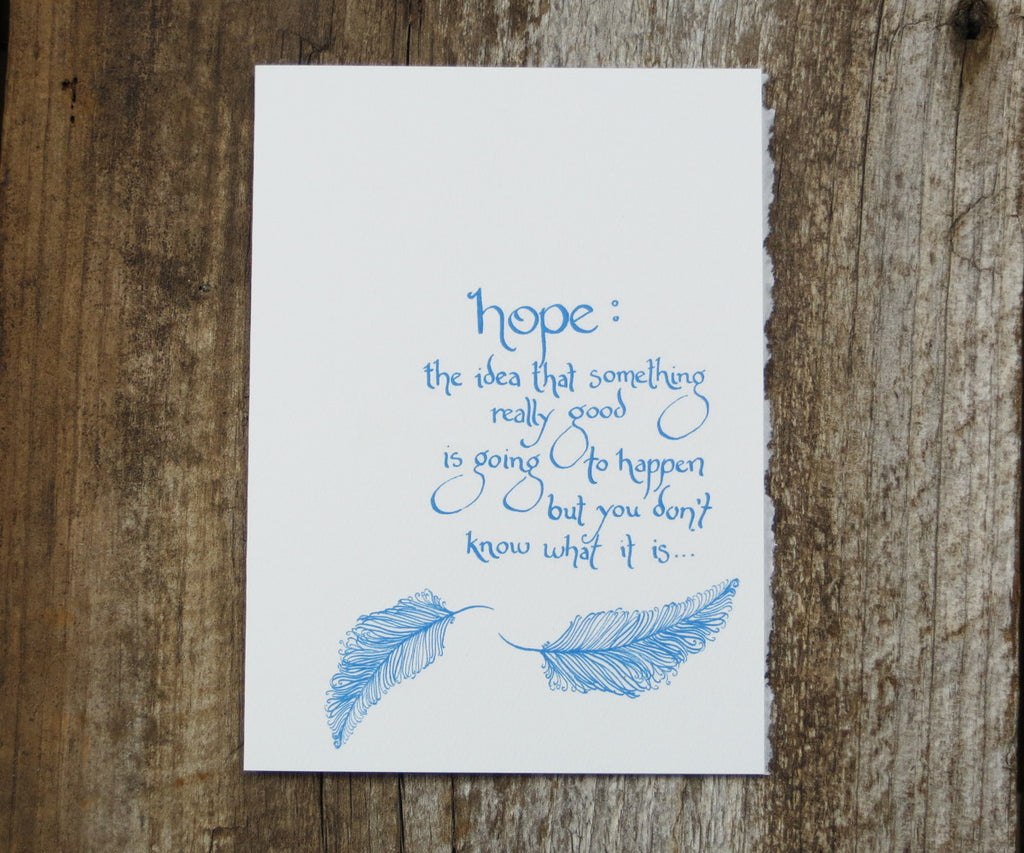 hope:
the idea that something
really good
is going to happen
but you don't
know what it is...